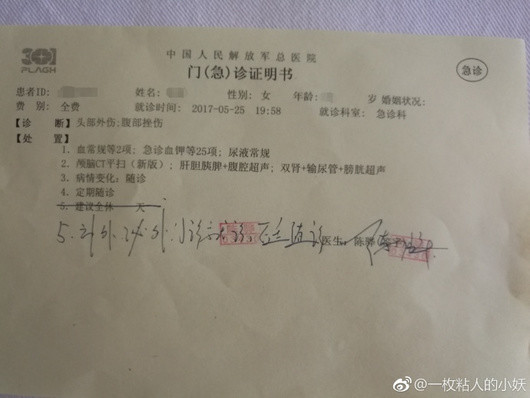 301
PLAGH
中国人民解放军总医院
门(急)诊证明书
急诊
患者ID: 姓名: 性别: 女 年龄: 岁 婚姻状况:
费 别: 全费 就诊时间: 2017-05-25 19:58 就诊科室: 急诊科
【诊 断】头部外伤;腹部挫伤
【处 置】
1. 血常规等2项; 急诊血钾等25项; 尿液常规
2. 颅脑CT平扫(新版); 肝胆胰脾+腹腔超声; 双肾+输尿管+膀胱超声
3. 病情变化: 随诊
4. 定期随诊
5. 建议全休 天
5. 医生: 陈
@一枚粘人的小妖